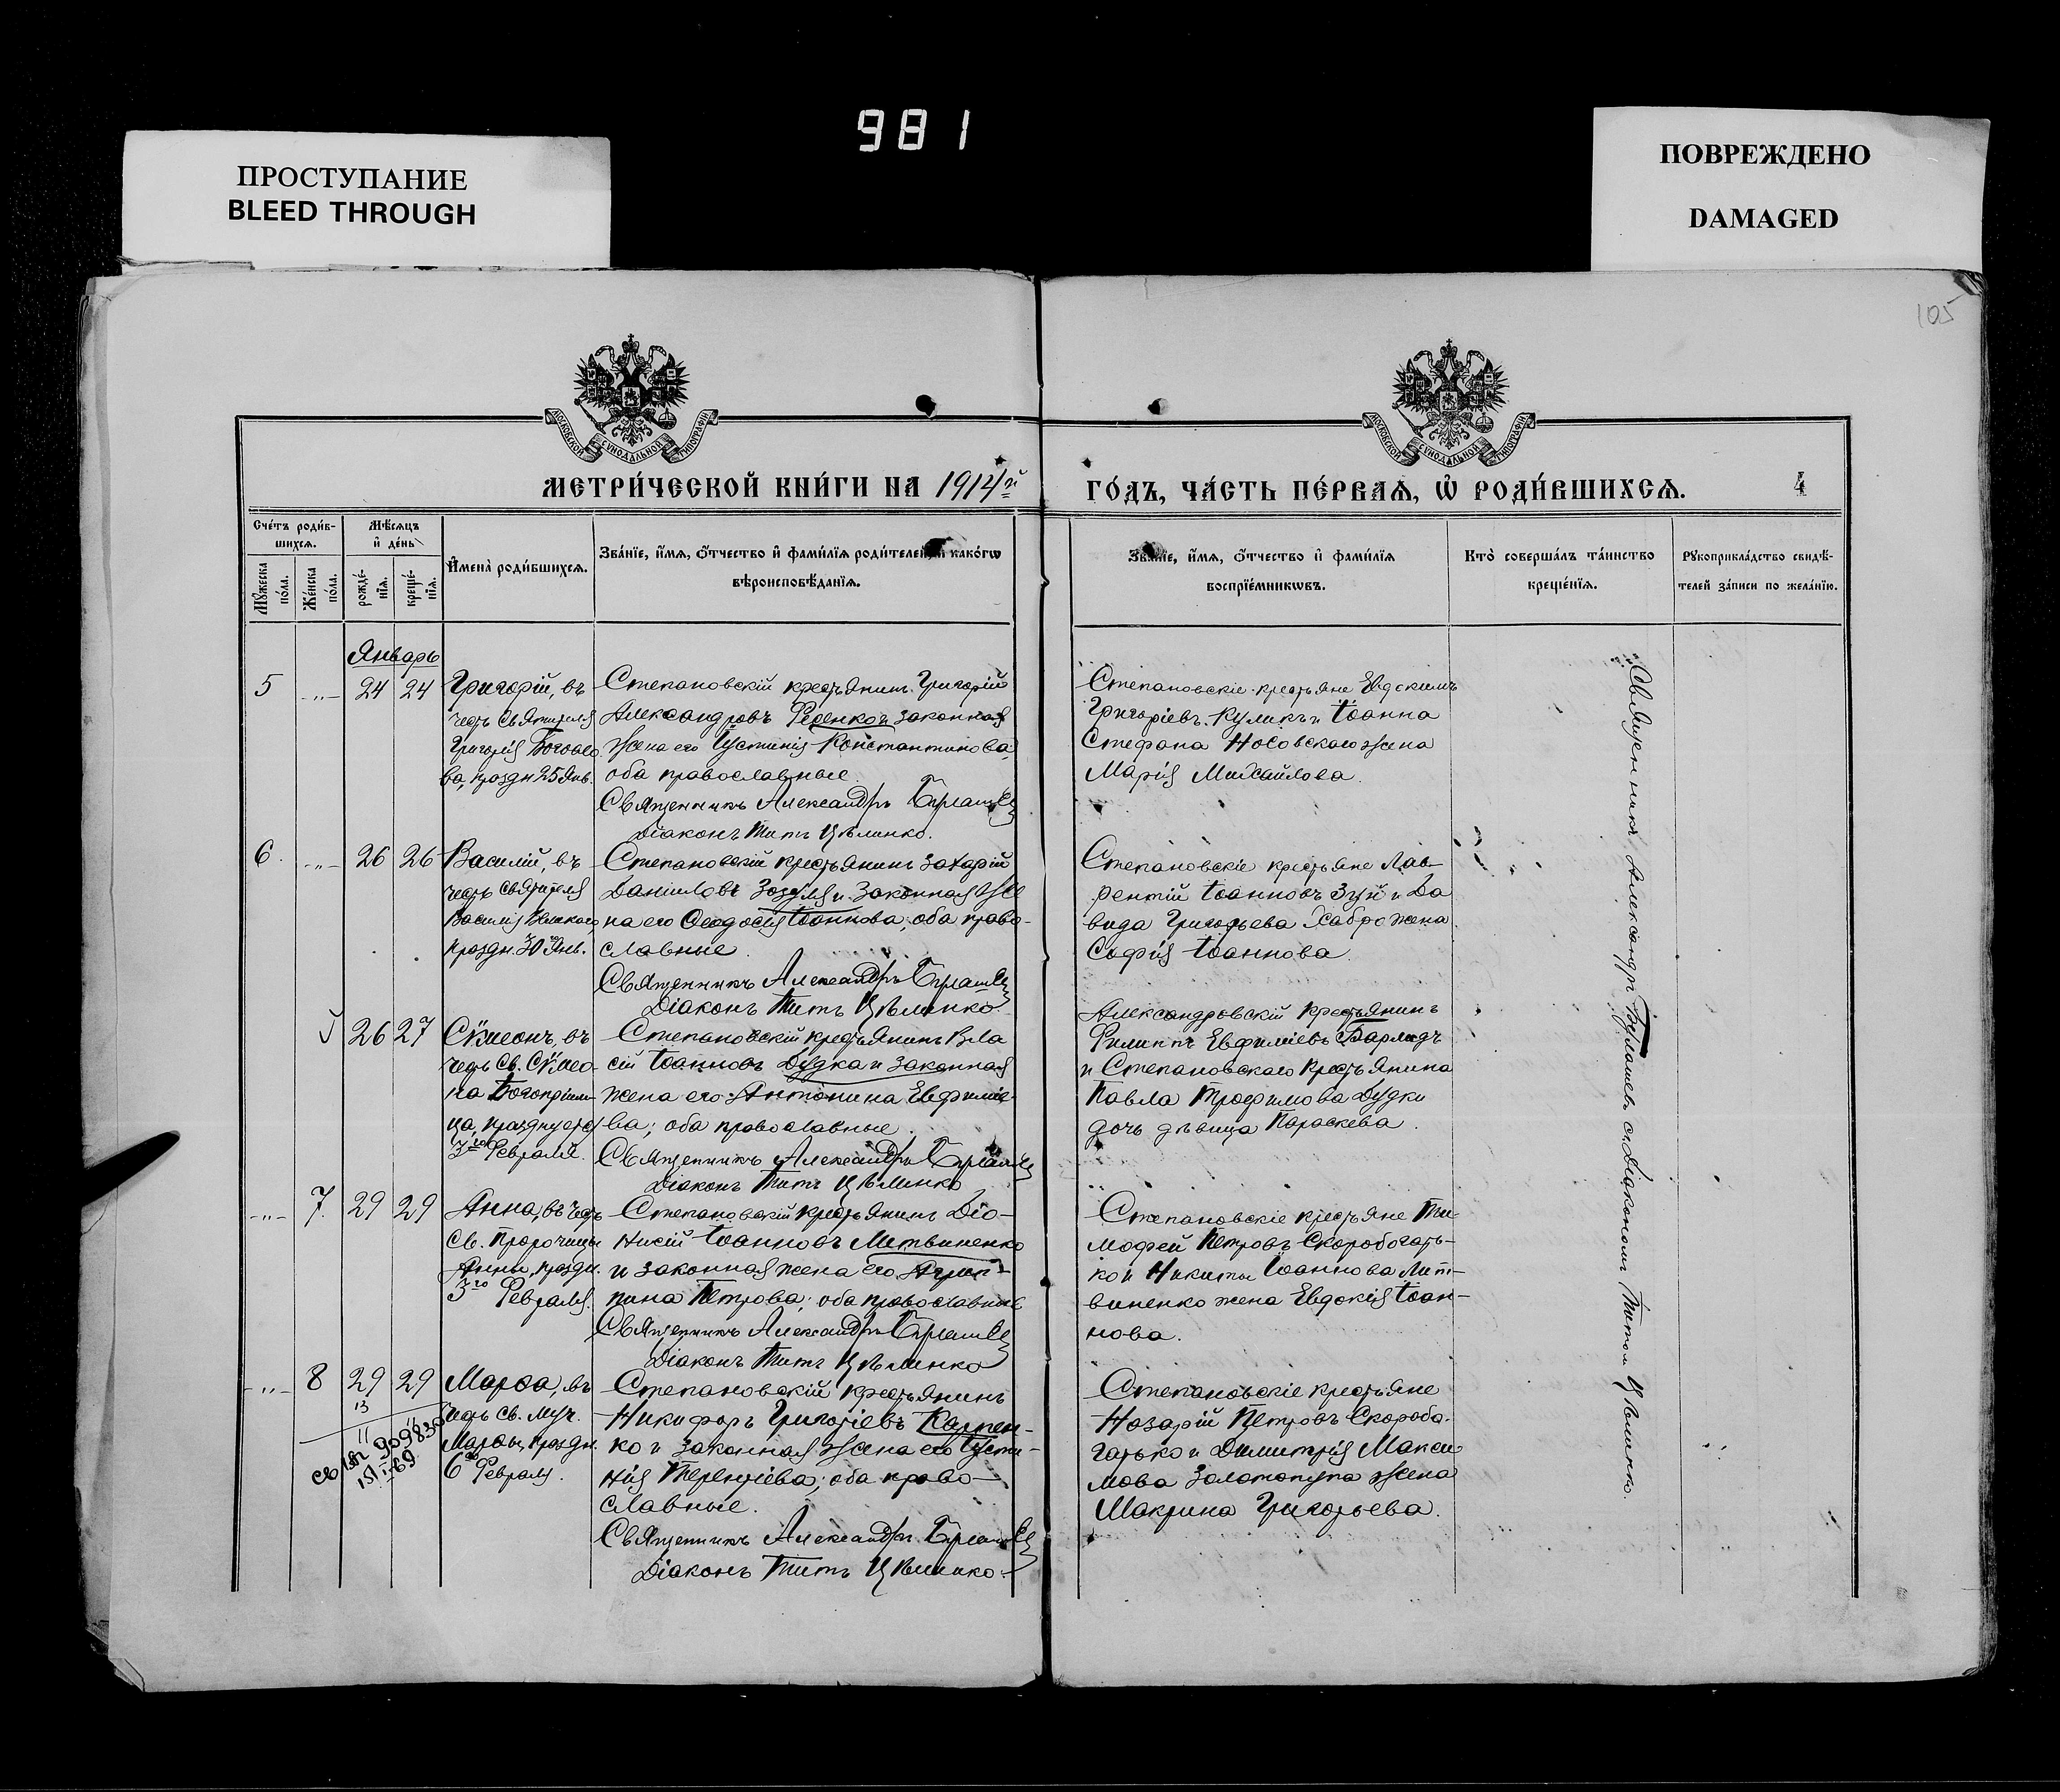 981
ПРОСТУПАНИЕ
BLEED THROUGH
ПОВРЕЖДЕНО
DAMAGED
105
МОСКОВСКОЙ СѴНОДАЛЬНОЙ ТИПОГРАФІИ
МОСКОВСКОЙ СѴНОДАЛЬНОЙ ТИПОГРАФІИ
МЕТРИ́ЧЕСКОЙ КНИ́ГИ НА 1914й
ГО́ДЪ, ЧА́СТЬ ПЕ́РВАѦ, Ѡ҆ РОДИ́ВШИХСѦ.
4
Сче́тъ роди́в-
шихсѧ.
Мѣ́сѧцъ
и҆ де́нь
Мꙋ́жеска по́ла.
Же́нска по́ла.
рожде́-
нїѧ.
креще́-
нїѧ.
И҆мена̀ роди́вшихсѧ.
Зва́нїе, и҆́мѧ, ѻ҆́тчество и҆ фами́лїѧ роди́телей, и҆ како́гѡ
вѣроисповѣ́данїѧ.
Зва́нїе, и҆́мѧ, ѻ҆́тчество и҆ фами́лїѧ
воспрїе́мникѡвъ.
Кто̀ соверша́лъ та́инство
креще́нїѧ.
Рꙋкоприкла́дство свидѣ́-
телей за́писи по жела́нїю.
Январь
5 -"- 24 24
Григорій, въ
честь Святителя
Григорія Богосло
ва, праздн 25 Янв.
Степановскій крестьянинъ Григорій
Александровъ Реденко и законная
жена его Іустинія Константинова,
оба православные.
Священникъ Александръ
Діаконъ Титъ Цѣлинко.
Степановскіе крестьяне Евдокимъ
Григоріевъ Куликъ и Іоанна
Стефана Носовскаго жена
Марія Михайлова.
6. -"- 26 26
Василій, въ
честь святителя
Василія Великаго,
праздн. 30го Янв.
Степановскій крестьянинъ Захарій
Даниловъ Зозуля и законная же
на его Ѳеодосія Іоаннова, оба право-
славные.
Священникъ Александръ
Діаконъ Титъ Цѣлинко.
Степановскіе крестьяне Лав-
рентій Іоанновъ Зуй и Да
вида Григорьева Хабро жена
Софія Іоаннова.
26 27
Сѵмеонъ, въ
честь Св. Сѵмео-
на Богопріим-
ца, празднуется
3го Февраля.
Степановскій крестьянинъ Вла
сій Іоанновъ Дудка и законная
жена его Антонина Евфиміе-
ва; оба православные.
Священникъ Александръ
Діаконъ Титъ Цѣлинко
Александровскій крестьянинъ
Филиппъ Евфиміевъ
и Степановскаго крестьянина
Павла Трофимова Дудки
дочь дѣвица Параскева.
-"- 7. 29 29
Анна, въ честь
Св. Пророчицы
Анны, праздн.
3го Февраля.
Степановскій крестьянинъ Діо-
нисій Іоанновъ Литвиненко
и законная жена его Агрип-
пина Петрова; оба православные
Священникъ Александръ
Діаконъ Титъ Цѣлинко
Степановскіе крестьяне Ти-
мофей Петровъ Скоробогать-
ко и Никиты Іоаннова Лит-
виненко жена Евдокія Іоан-
нова.
-"- 8 29 29
Марѳа, въ
честь св. Муч.
Марѳы, праздн.
6го Февраля.
Степановскій крестьянинъ
Никифоръ Григоріевъ Карпен-
ко и законная жена его Іусти-
нія Терентіева; оба право-
славные.
Священникъ Александръ
Діаконъ Титъ Цѣлинко.
Степановскіе крестьяне
Назарій Петровъ Скоробо-
гатько и Димитрія Макси
мова Золотопупа жена
Макрина Григорьева.
Священникъ Александръ с діакономъ Титомъ Цѣлинко.